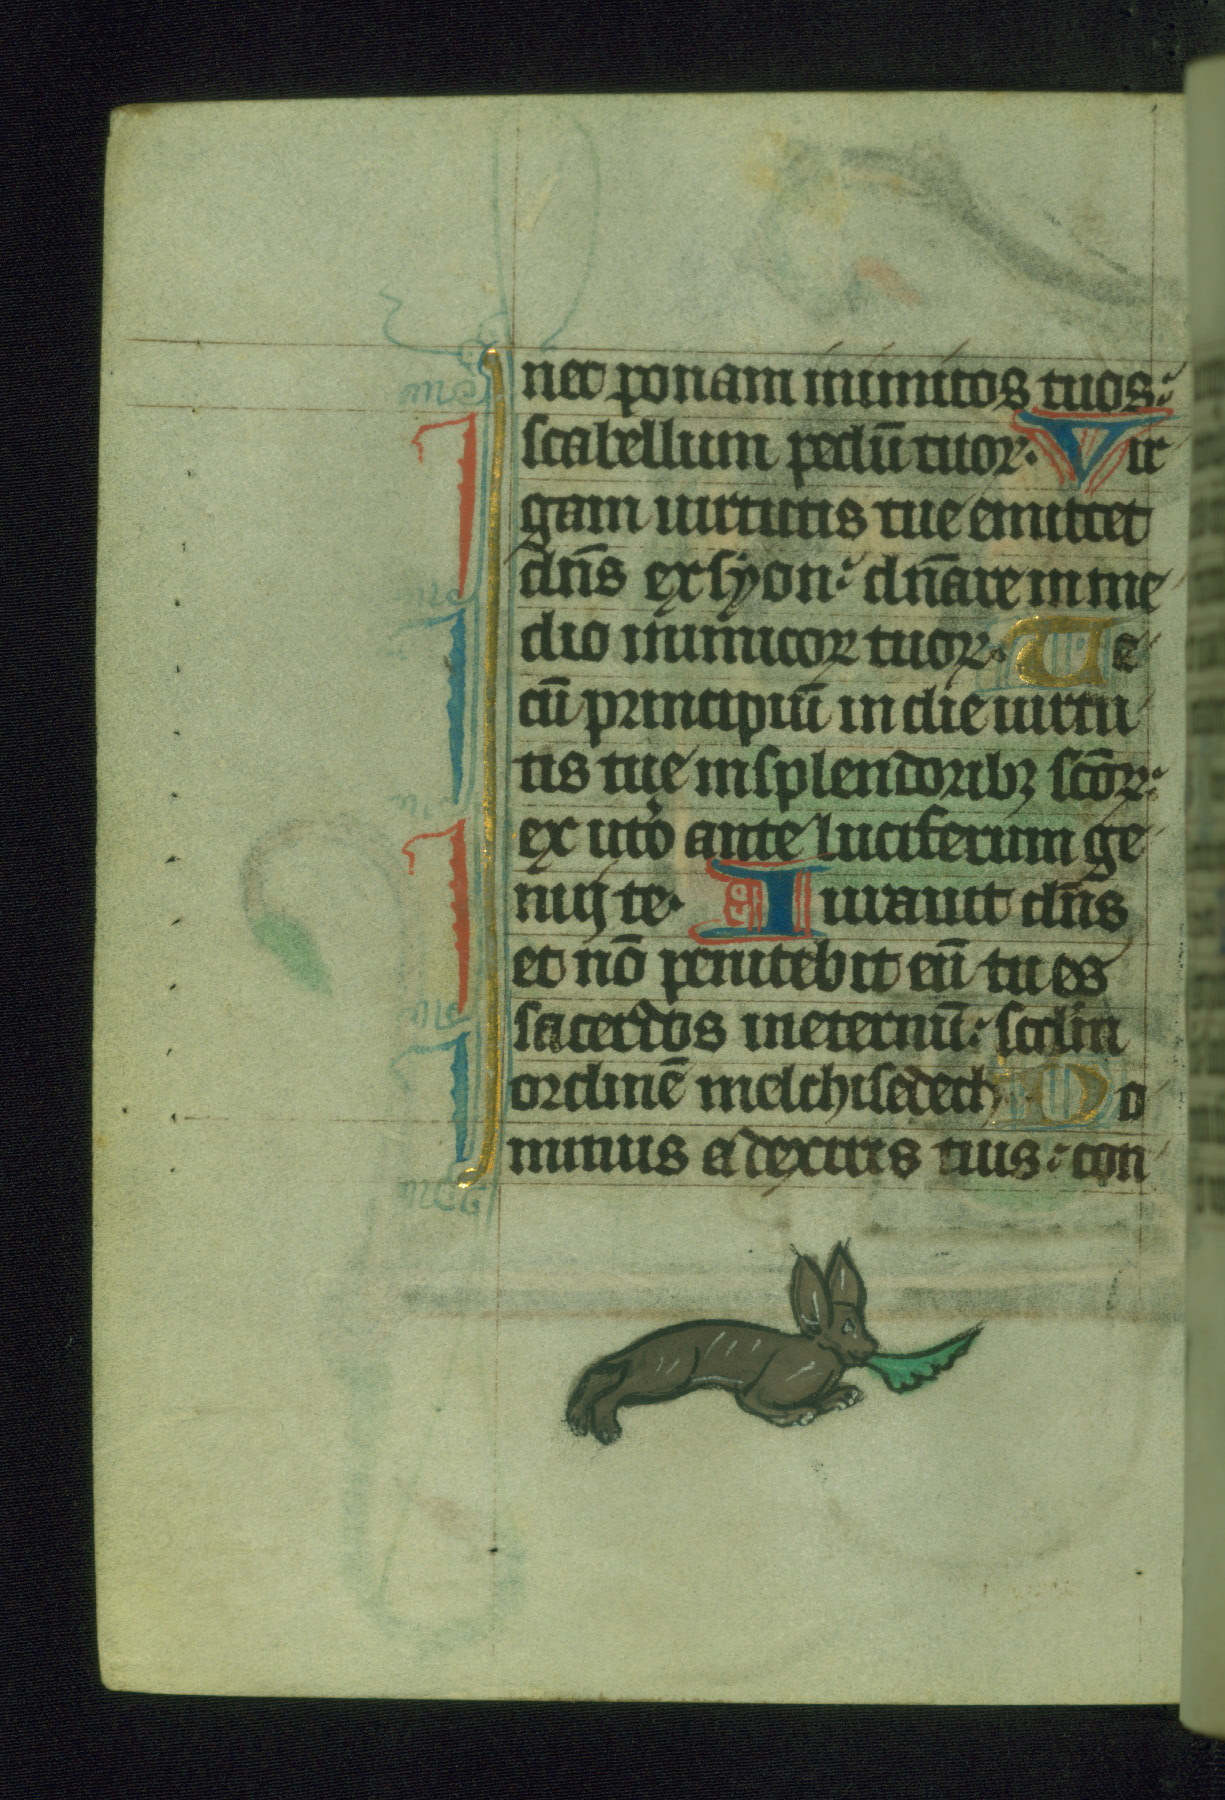 nec ponam inimicos tuos:
scabellum pedū tuoꝝ. Vir
gam uirtutis tue emittet
dn̄s ex syon: dn̄are in me
dio inimicoꝝ tuoꝝ. Te
cū principiū in die uirtu
tis tue in splendoribꝫ sc̄oꝝ:
ex utͦo ante luciferum ge
nuij te. Iurauit dn̄s
et nō penitebit eū tu es
sacerdos in eternū: scdm
ordinē melchisedech Do
minus a dextris tuis: con